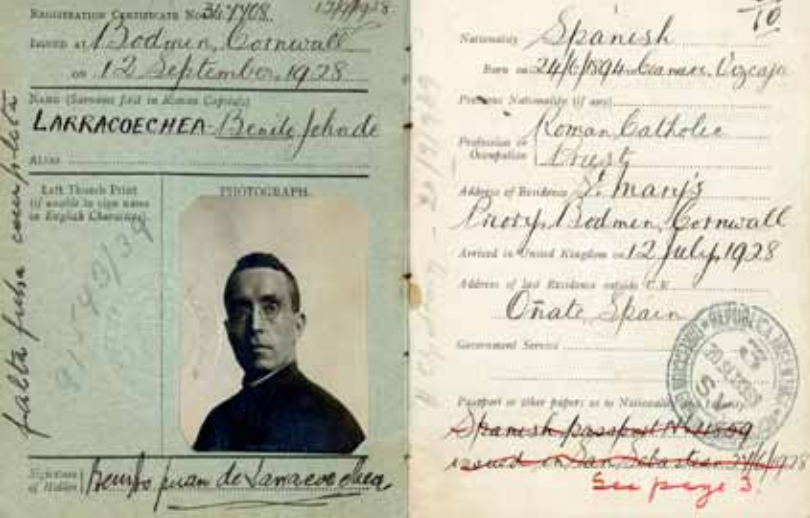 REGISTRATION CERTIFICATE No. 347708
12/9/1928
ISSUED AT Bodmin, Cornwall
ON 12 September, 1928
NAME (Surname first in Roman Capitals)
LARRACOECHEA Benito John de
ALIAS
Left Thumb Print
(if unable to sign name
in English Characters).
PHOTOGRAPH.
falta fecha completa
Signature
of Holder
Benito Juan de Larracoechea
70
Nationality Spanish
Born on 24/6/1894 in Vizcaja
Previous Nationality (if any)
Profession or
Occupation
Roman Catholic
Priest
Address of Residence St. Mary's
Priory, Bodmin, Cornwall
Arrived in United Kingdom on 12 July, 1928
Address of last Residence outside U.K.
Oñate, Spain
Government Service
Passport or other papers as to Nationality and Identity.
Spanish passport No.
issued in San Sebastian 1928
See page 3.
REPUBLICA ARGENTINA